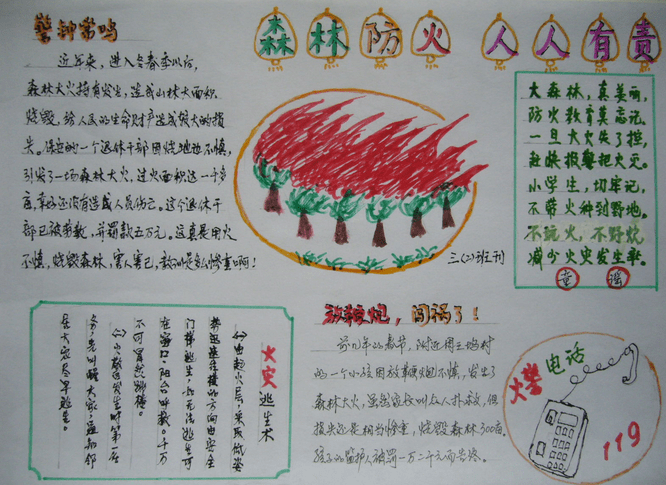 森林防火 人人有责
警钟常鸣
近年来，进入冬春季以后，
森林大火持有发生，造成山林大面积
烧毁，给人民的生命财产造成很大的损
失。保安的一个退休干部因烧地边不慎，
引发了一场森林大火，过火面积达一千多
亩，幸好还没有造成人员伤亡。这个退休干
部已被拘教，并罚款五万元，这真是用火
不慎，烧毁森林，害人害己，教训是多么惨重啊！
三(2)班主刊
大森林，真美丽，
防火教育莫忘记，
一旦大火失了控，
赶快报警把火灭。
小学生，切牢记，
不带火种到野地。
不玩火，不野炊，
减少火灾发生率。
童谣
火灾逃生术
(一)由起火层，采取低姿
势迅速往楼的方向由安全
门梯逃生，如无法逃生可
在窗口、阳台呼救。千万
不可冒然跳楼。
(二)火灾发生时第一
务，先叫醒大家，通知邻
居大家尽早逃生。
放鞭炮，闯祸了！
前几年的春节，附近
的一个小孩因放鞭炮不慎，发生了
森林大火，虽然家长叫众人扑救，但
损失还是相当惨重，烧毁森林300亩，
孩子的监护人被罚一万二千元而告终。
火警电话
119